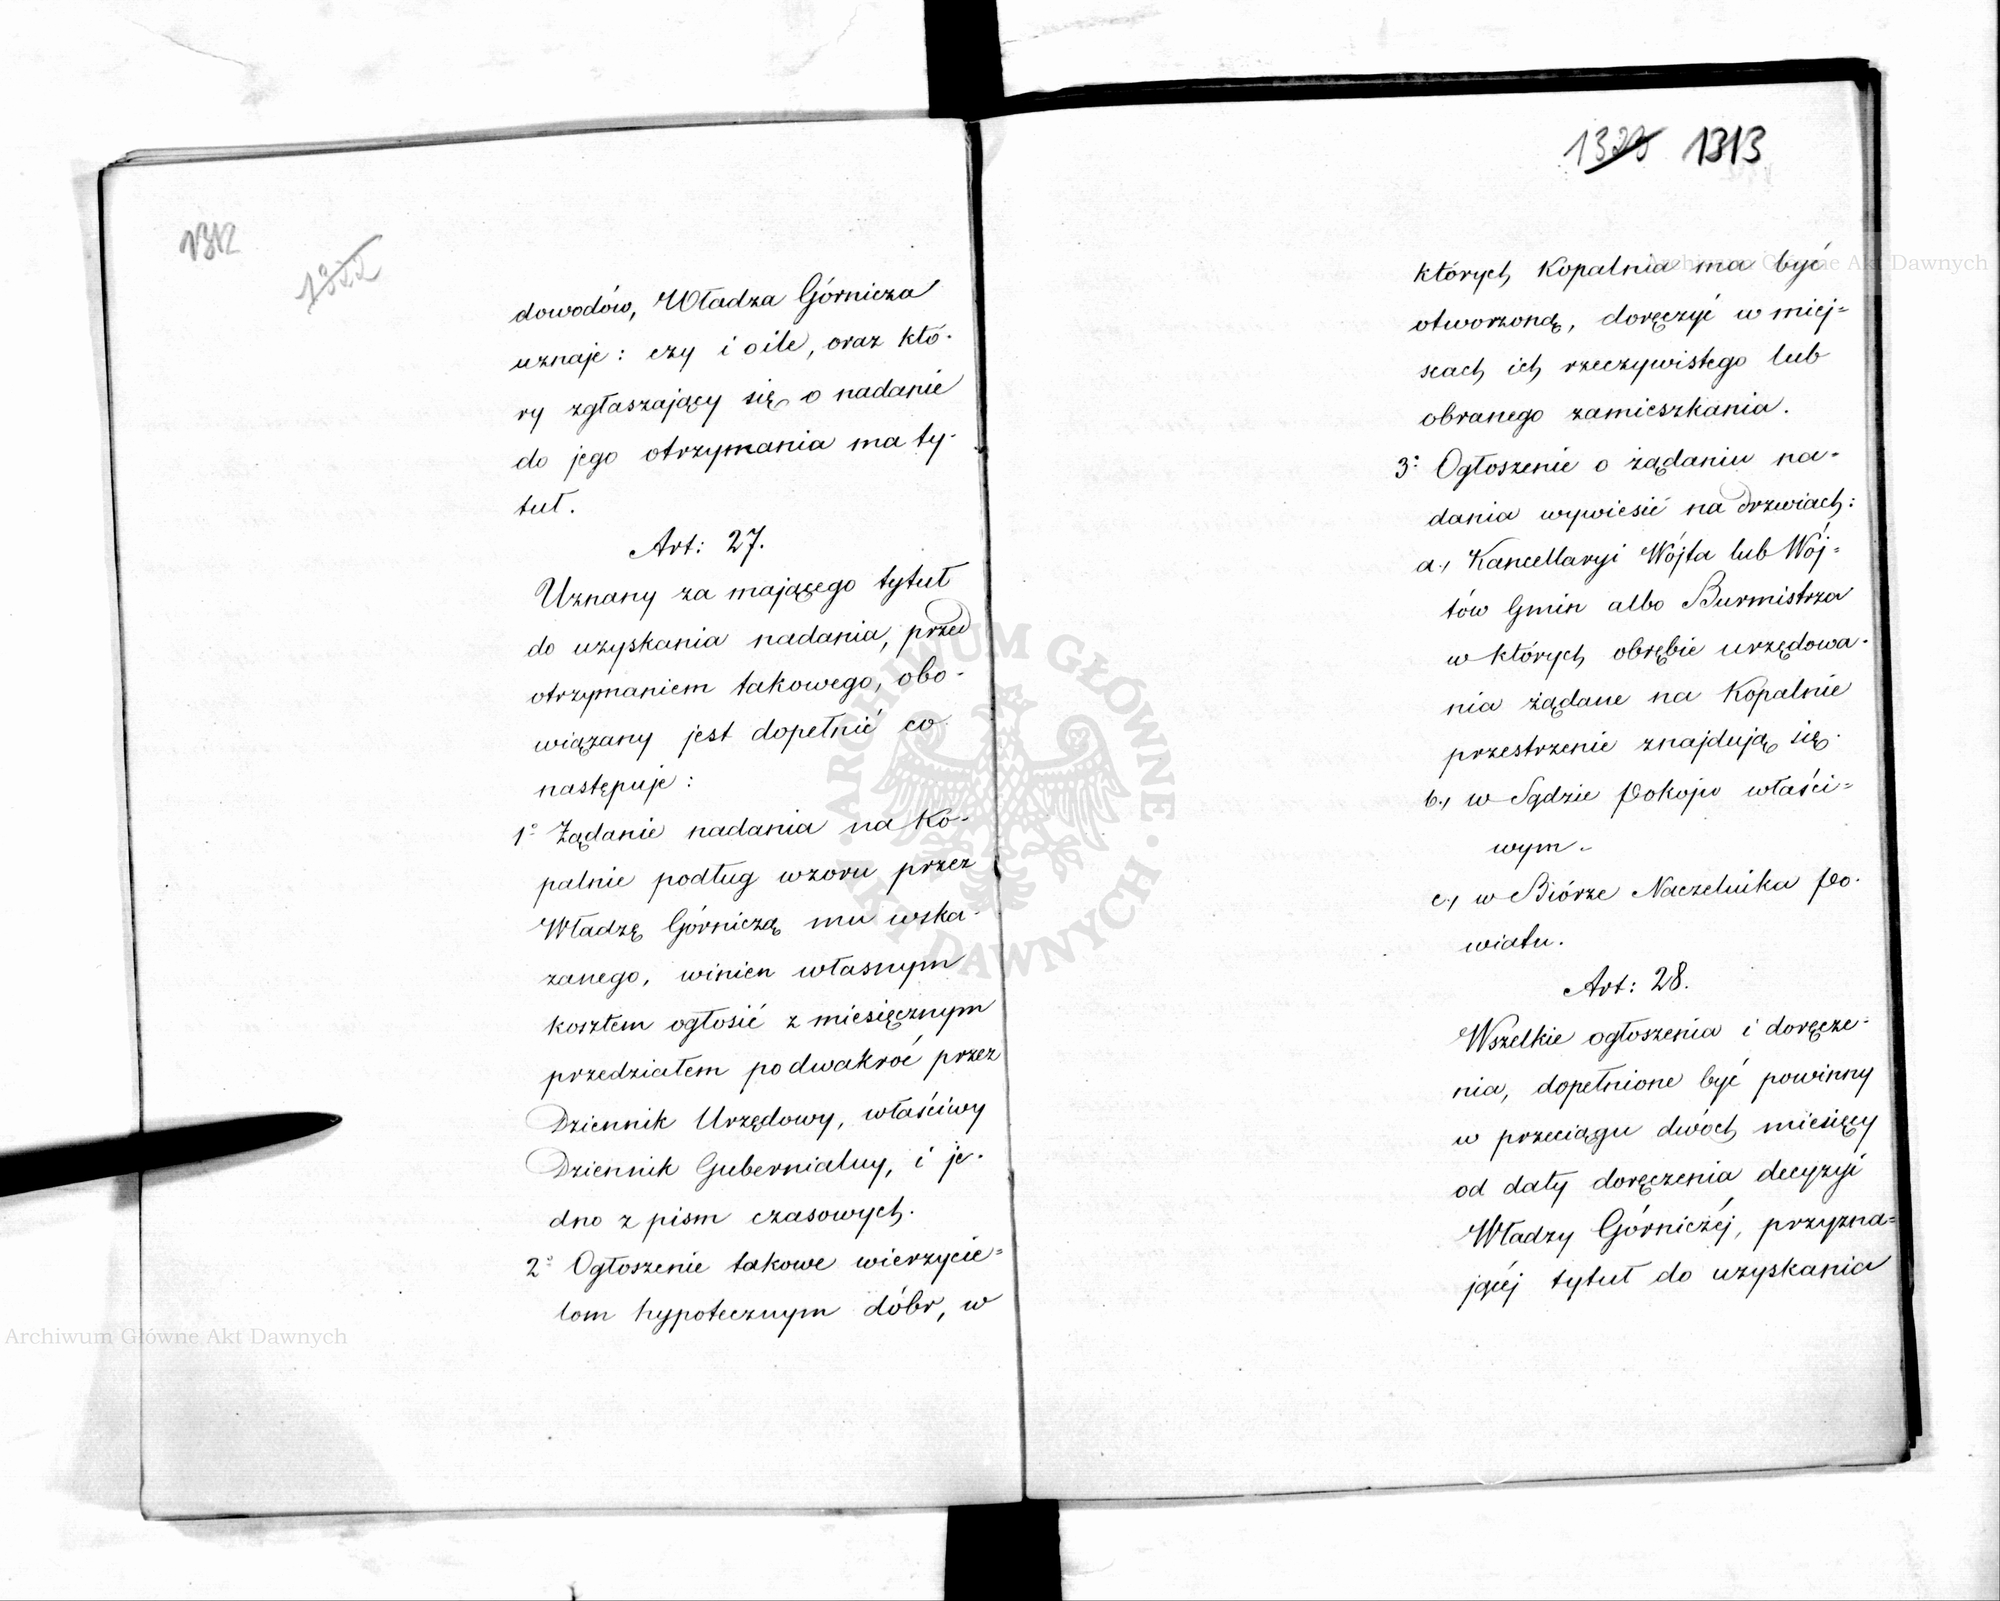 1312
1322
dowodów, Władza Górnicza
uznaje: czy i o ile, oraz któ-
ry zgłaszający się o nadanie
do jego otrzymania ma ty-
tuł.
Art: 27.
Uznany za mającego tytuł
do uzyskania nadania, przed
otrzymaniem takowego, obo-
wiązany jest dopełnić co
następuje:
1° Żądanie nadania na Ko-
palnie podług wzoru przez
Władzę Górniczą mu wska-
zanego, winien własnym
kosztem ogłosić z miesięcznym
przedziałem po dwakroć przez
Dziennik Urzędowy, właściwy
Dziennik Gubernialny, i je-
dno z pism czasowych.
2° Ogłoszenie takowe wierzycie=
lom hypotecznym dóbr, w
1313
których Kopalnia ma być
otworzoną, doręczyć w miej=
scach ich rzeczywistego lub
obranego zamieszkania.
3° Ogłoszenie o żądaniu na=
dania wywiesić na drzwiach:
a., Kancellaryi Wójta lub Wój=
tów Gmin albo Burmistrza
w których obrębie urzędowa-
nia żądane na Kopalnie
przestrzenie znajdują się.
b., w Sądzie Pokoju właści=
wym.
c., w Biórze Naczelnika Po-
wiatu.
Art: 28.
Wszelkie ogłoszenia i doręcze=
nia, dopełnione być powinny
w przeciągu dwóch miesięcy
od daty doręczenia decyzyi
Władzy Górniczéj, przyzna=
jącéj tytuł do uzyskania
ARCHIWUM GŁÓWNE AKT DAWNYCH
Archiwum Główne Akt Dawnych
Archiwum Główne Akt Dawnych